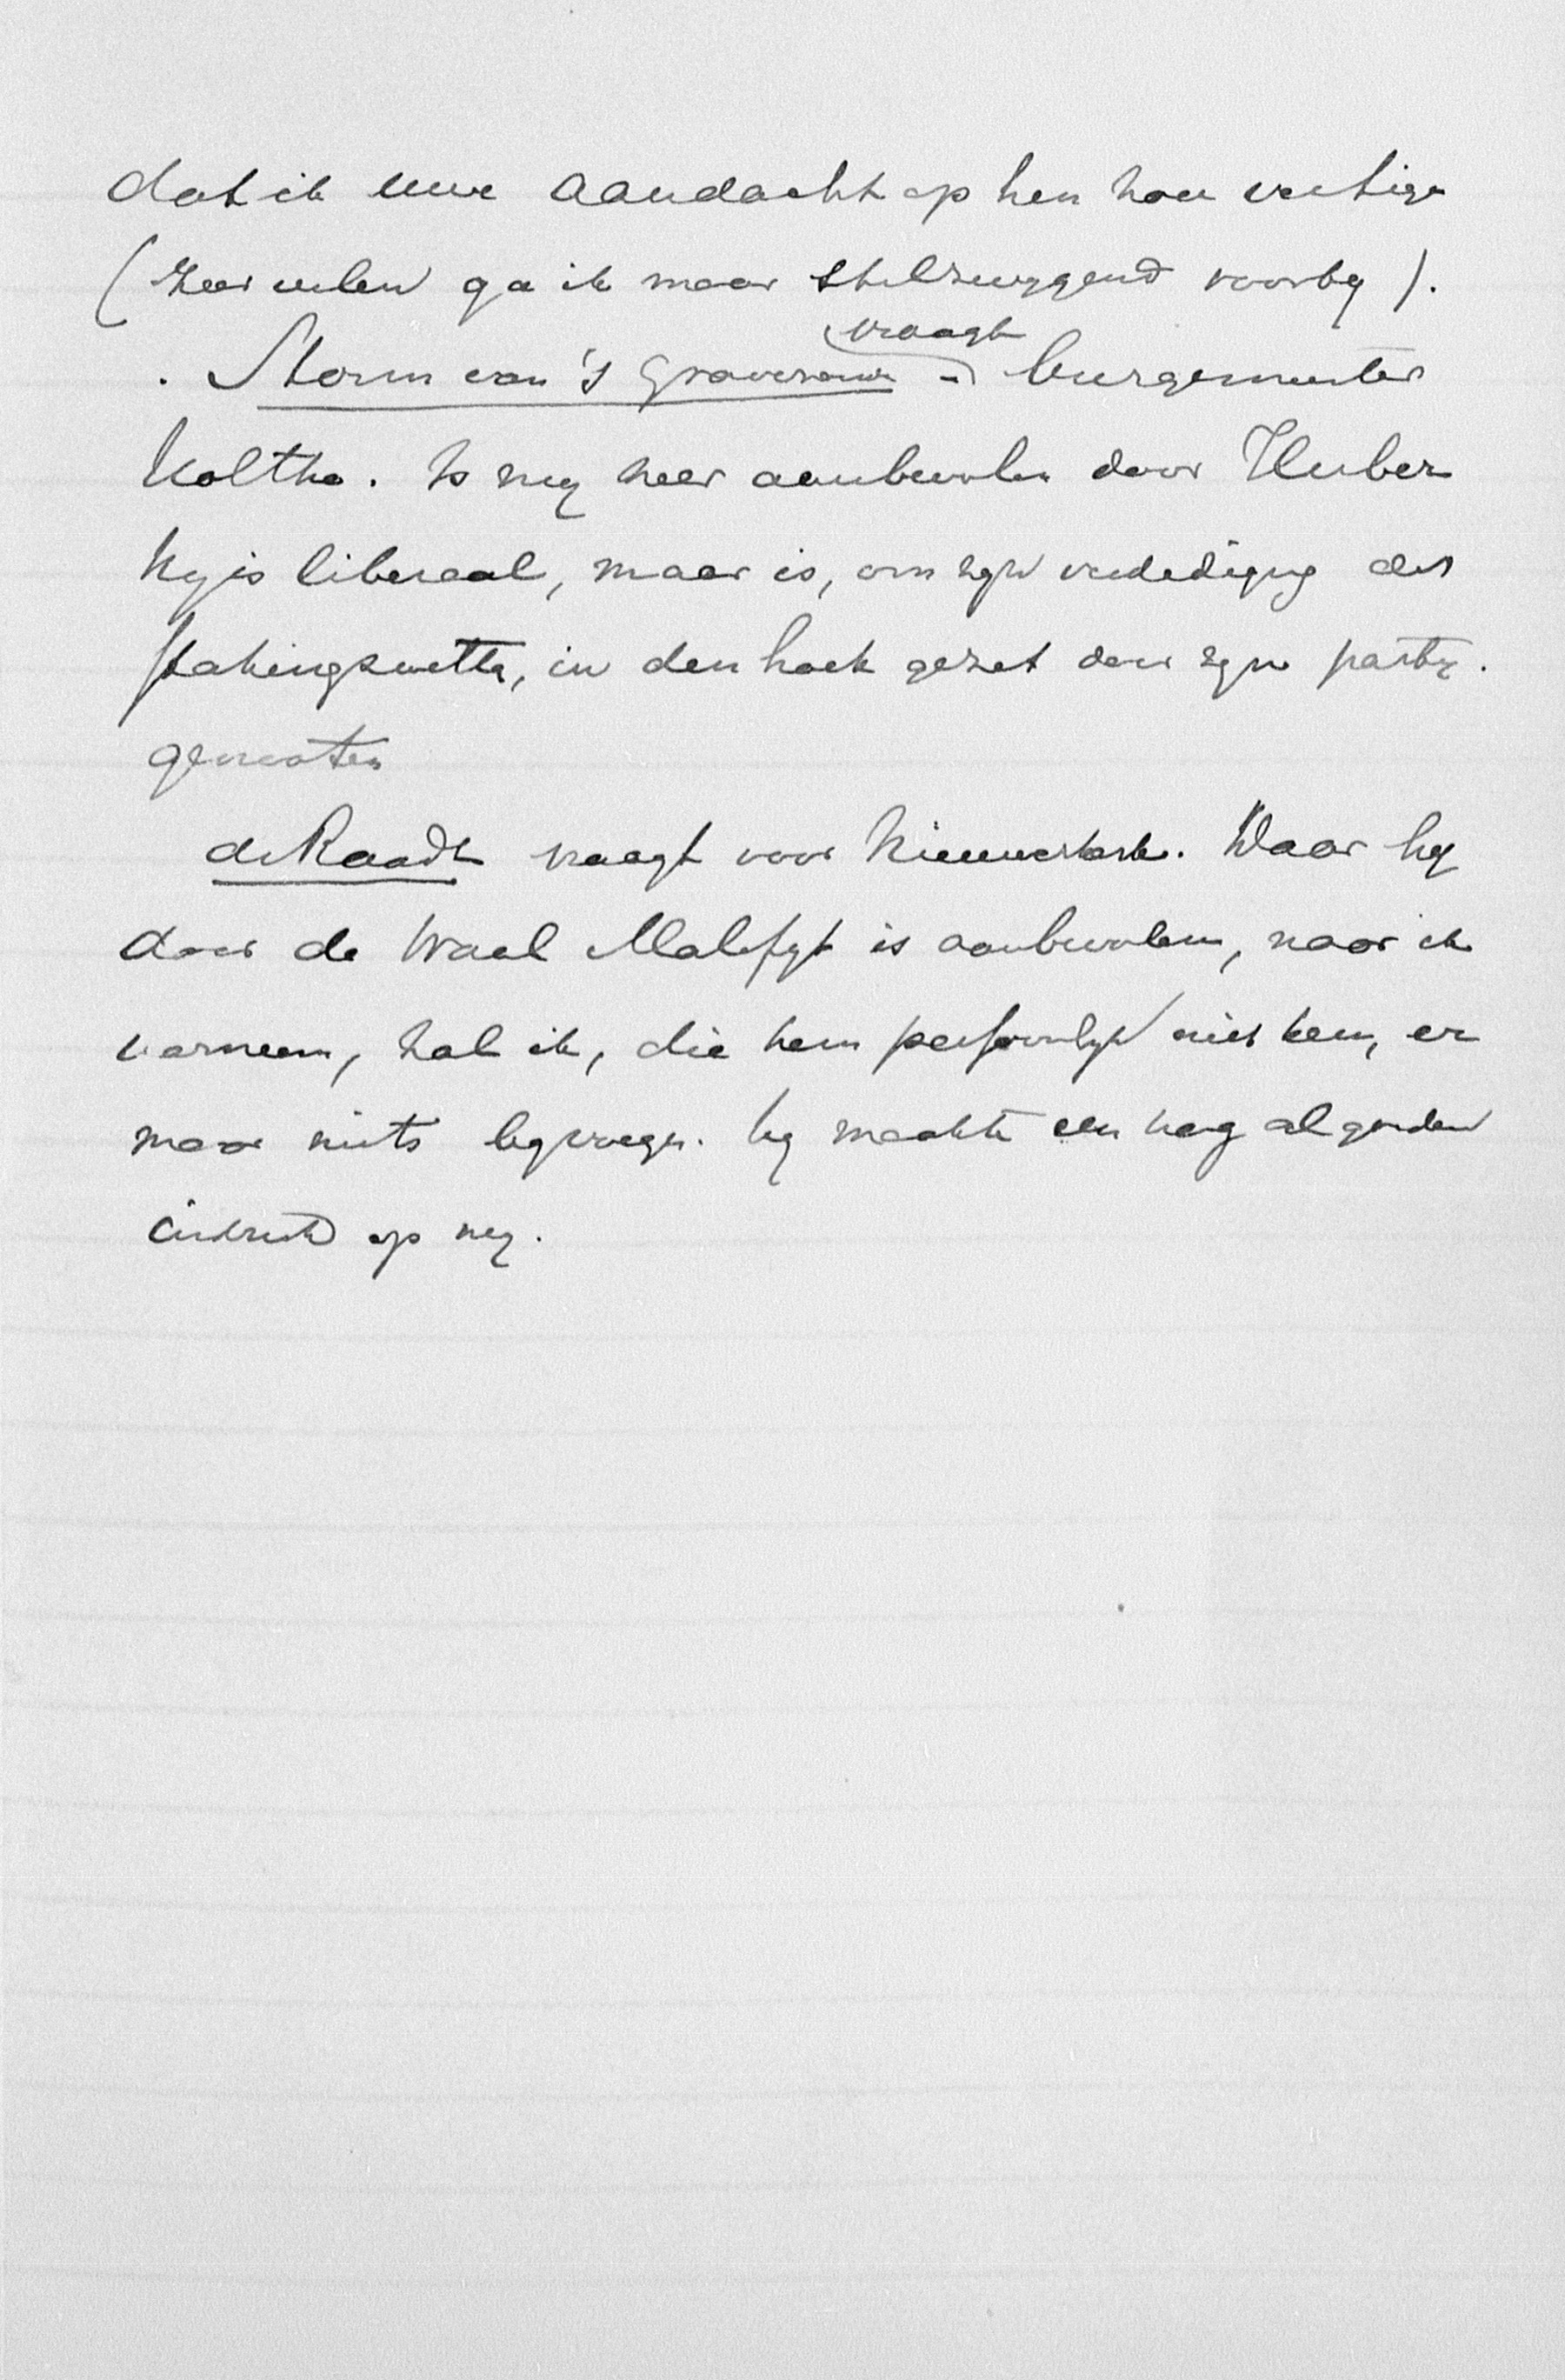 dat ik uwe aandacht op hen zou vestigen
(zeer velen ga ik maar stilzwygend voorby).
vraagt
. Storm van 's Gravesande - burgemeester
Noltho. Is my zeer aanbevolen door Huber
Hy is liberaal, maar is, om zyn verdediging der
stakingswetten, in den hoek gezet door zyn party.
genooten
de Raadt vraagt voor Nieuwerkerk. Waar hy
door de Waal Malefyt is aanbevolen, naar ik
verneem, zal ik, die hem persoonlyk niet ken, er
maar niets byvoegen. Hy maakte een nog al goeden
indruk op my.